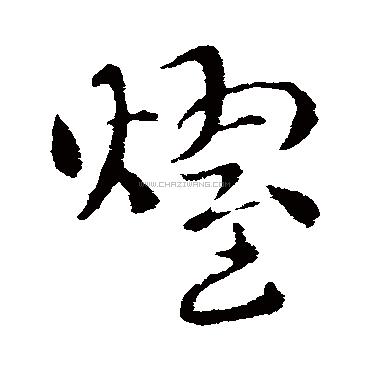 燈
WWW.CHAZIWANG.COM